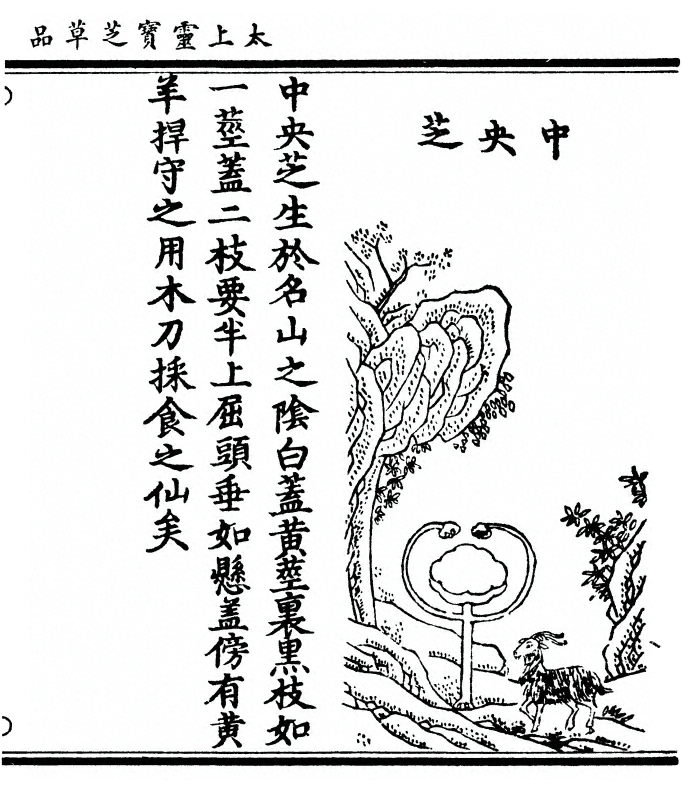 太上靈寶芝草品
中央芝
中央芝生於名山之陰白蓋黃莖裏黑枝如
一莖蓋二枝要半上屈頭垂如懸蓋傍有黃
羊捍守之用木刀採食之仙矣